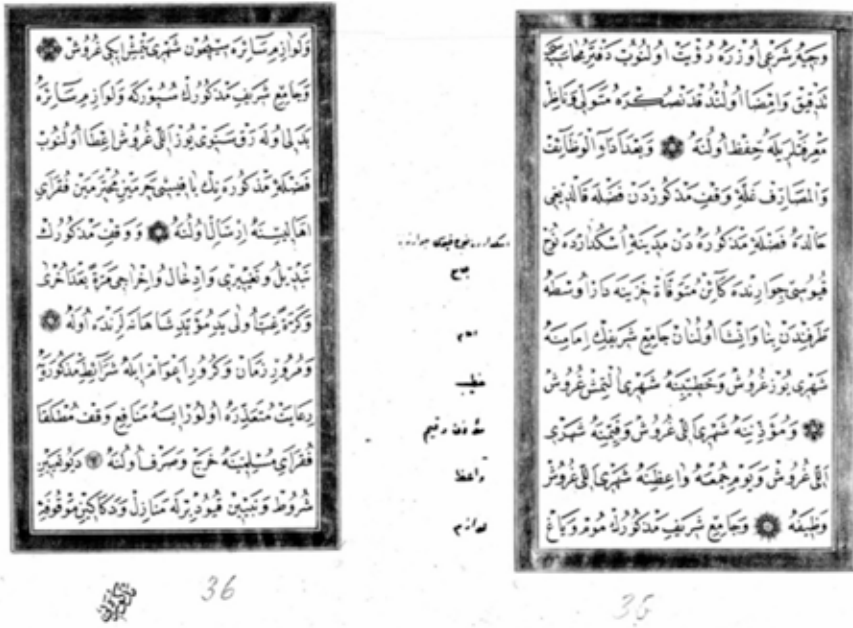 وجه شرعى اوزره رؤيت اولنوب دفتر محاسبه
تدقيق وامضا اولندقدنصكره متولى وناظر
معرفتلريله حفظ اولنه وبعد اداء الوظائف
والمصارف غلهٔ وقف مذكوردن فضله قالديغى
حالده فضلهٔ مذكوره دن مدينهٔ اسكدارده نوح
قپوسى جوارنده كائن متوفاة خزينه دار اوسطه
طرفندن بنا وانشا اولنان جامع شريفك امامنه
شهرى يوز غروش وخطيبنه شهرى التمش غروش
ومؤذننه شهرى اللى غروش وقيمنه شهرى
اللى غروش ويوم جمعه واعظنه شهرى اللى غروش
وظيفه وجامع شريف مذكورك موم وياغ
جامع
امام
خطيب
مؤذن وقيم
واعظ
لوازم
36
ولوازم سائره سيچون شهرى يتمش ايكى غروش
وجامع شريف مذكورك سپوركه ولوازم سائره
بدلى اوله رق سنوى يوز اللى غروش اعطا اولنوب
فضلهٔ مذكوره نك باقيسى حرمين محترمين فقراى
اهاليسنه ارسال اولنه ووقف مذكورك
تبديل وتغييرى وادخال واخراجى مرة بعد اخرى
وكرة غب اولى يد مؤيد شاهانه لرنده اوله
ومرور زمان وكرور اعوام ايله شرائط مذكوره يه
رعايت متعذره اولور ايسه منافع وقف مطلقا
فقراى مسلمينه خرج وصرف اولنه ديو تعيين
شروط وتبيين قيود برله منازل ودكاكين موقوفه
36